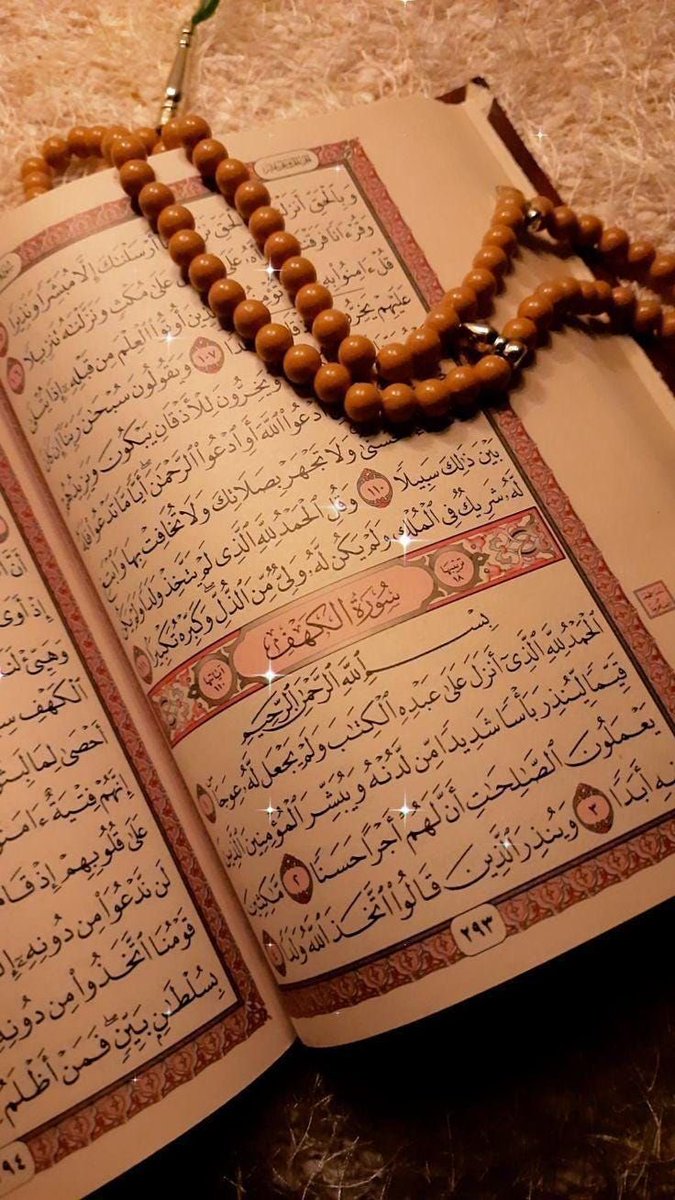 وَبِٱلْحَقِّ أَرْسَلْنَٰكَ إِلَّا مُبَشِّرًا وَنَذِيرًا
وَقُرْءَانًا عَلَىٰ مُكْثٍ وَنَزَّلْنَٰهُ تَنزِيلًا
قُلْ ءَامِنُوا۟ بِهِۦٓ أُوتُوا۟ ٱلْعِلْمَ مِن قَبْلِهِۦٓ إِذَا يُتْلَىٰ
عَلَيْهِمْ ١٠٧ وَيَقُولُونَ سُبْحَٰنَ رَبِّنَآ إِن
وَيَخِرُّونَ لِلْأَذْقَانِ يَبْكُونَ وَيَزِيدُهُمْ
ٱدْعُوا۟ ٱللَّهَ أَوِ ٱدْعُوا۟ ٱلرَّحْمَٰنَ أَيًّا مَّا تَدْعُوا۟ فَلَهُ
وَلَا تَجْهَرْ بِصَلَاتِكَ وَلَا تُخَافِتْ بِهَا وَٱبْتَغِ
بَيْنَ ذَٰلِكَ سَبِيلًا ١١٠ وَقُلِ ٱلْحَمْدُ لِلَّهِ ٱلَّذِى لَمْ يَتَّخِذْ وَلَدًا وَلَمْ يَكُن
لَّهُۥ شَرِيكٌ فِى ٱلْمُلْكِ وَلَمْ يَكُن لَّهُۥ وَلِىٌّ مِّنَ ٱلذُّلِّ وَكَبِّرْهُ تَكْبِيرًا
ترتيبها ١٨ سُورَةُ ٱلْكَهْفِ آياتها ١١٠
بِسْمِ ٱللَّهِ ٱلرَّحْمَٰنِ ٱلرَّحِيمِ
ٱلْحَمْدُ لِلَّهِ ٱلَّذِىٓ أَنزَلَ عَلَىٰ عَبْدِهِ ٱلْكِتَٰبَ وَلَمْ يَجْعَل لَّهُۥ عِوَجَا ١
قَيِّمًا لِّيُنذِرَ بَأْسًا شَدِيدًا مِّن لَّدُنْهُ وَيُبَشِّرَ ٱلْمُؤْمِنِينَ ٱلَّذِينَ
يَعْمَلُونَ ٱلصَّٰلِحَٰتِ أَنَّ لَهُمْ أَجْرًا حَسَنًا ٢ مَّٰكِثِينَ
فِيهِ أَبَدًا ٣ وَيُنذِرَ ٱلَّذِينَ قَالُوا۟ ٱتَّخَذَ ٱللَّهُ وَلَدًا ٤
٢٩٣
إِذْ أَوَى
وَهَيِّئْ لَنَا
ٱلْكَهْفِ
أَحْصَىٰ لِمَا
إِنَّهُمْ فِتْيَةٌ ءَامَنُوا۟
عَلَىٰ قُلُوبِهِمْ إِذْ قَامُوا۟
لَن نَّدْعُوَا۟ مِن دُونِهِۦٓ
قَوْمُنَا ٱتَّخَذُوا۟ مِن دُونِهِۦٓ
بِسُلْطَٰنٍ بَيِّنٍ فَمَنْ أَظْلَمُ